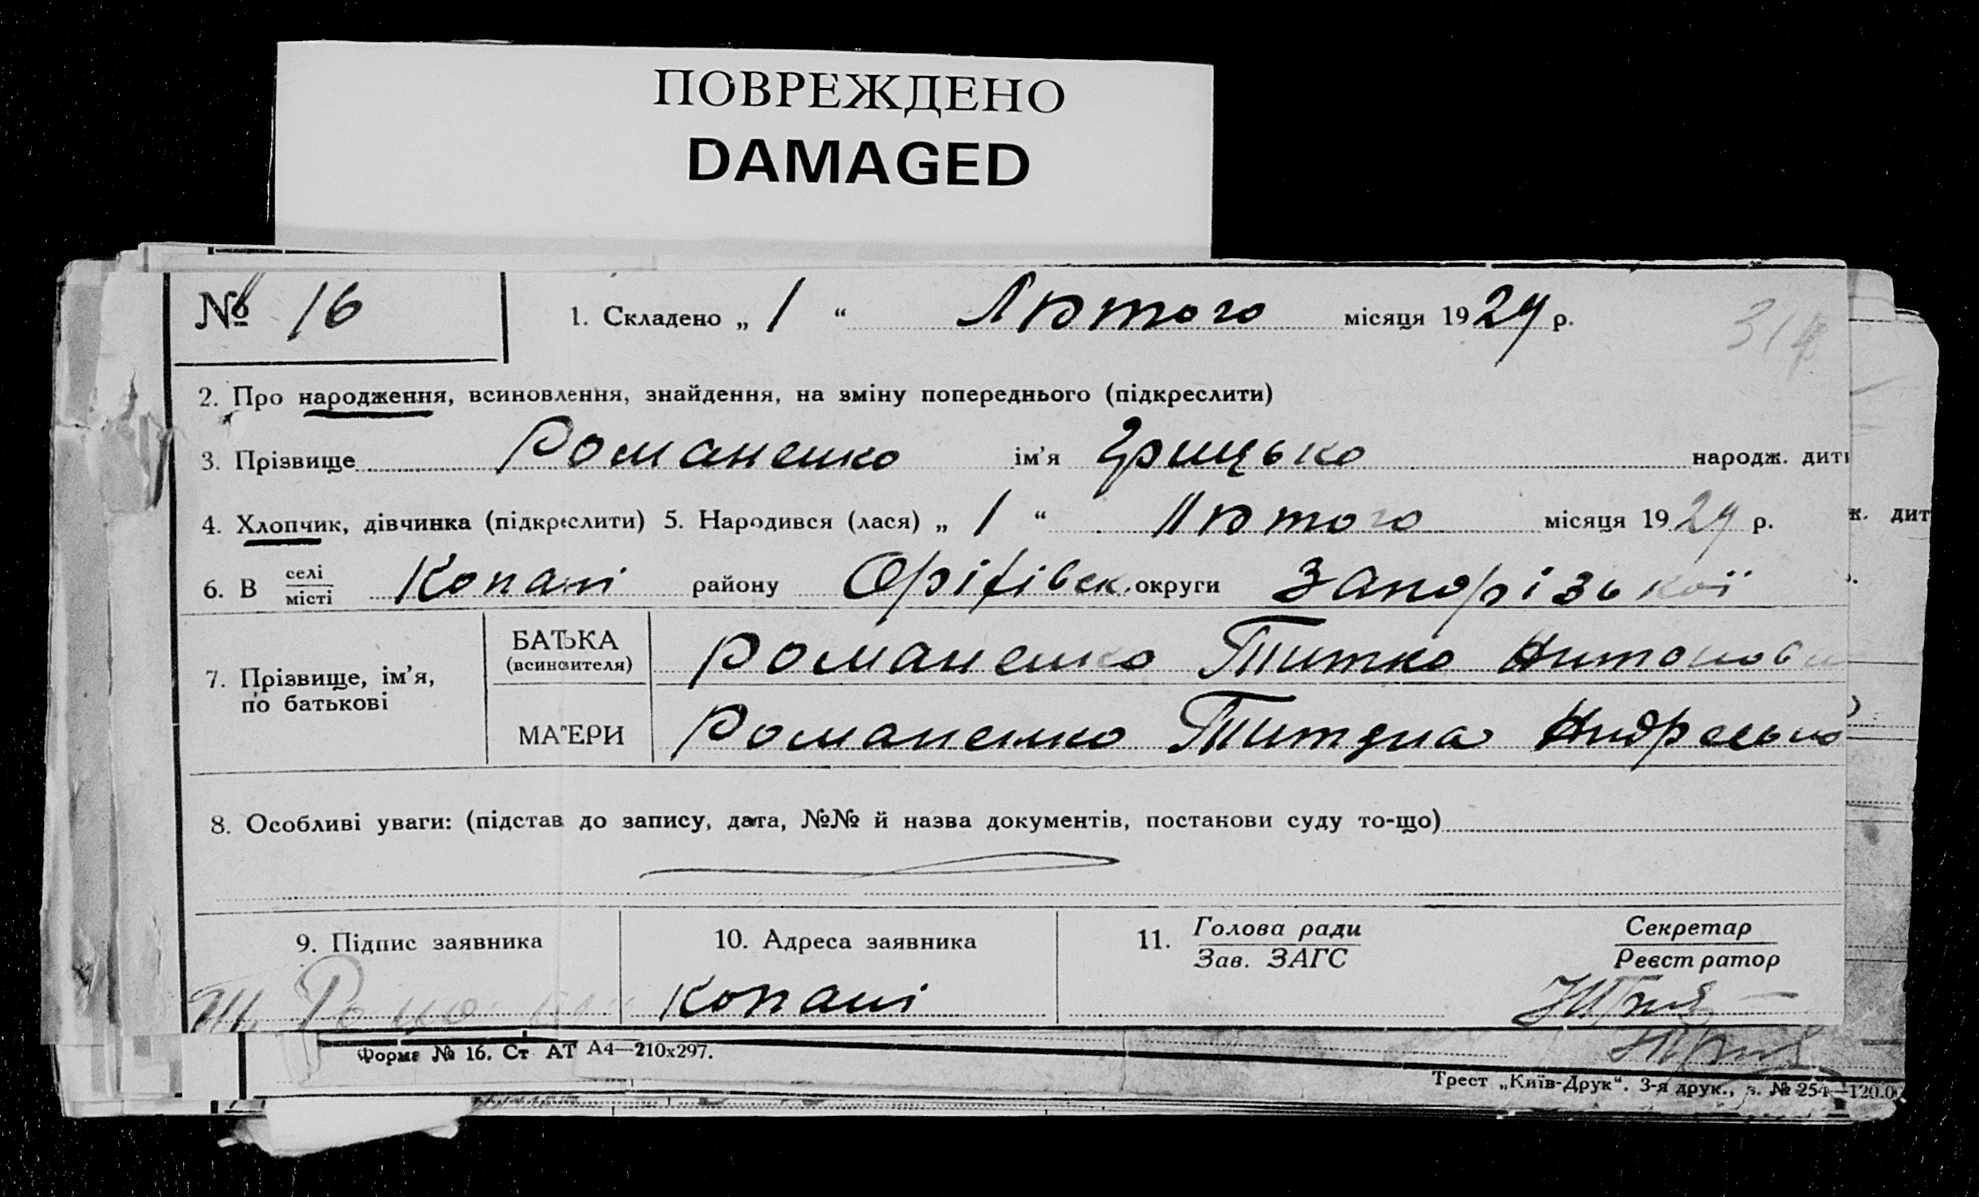 ПОВРЕЖДЕНО
DAMAGED
№ 16
1. Складено „ 1 “ Лютого місяця 1929 р.
314
2. Про народження, всиновлення, знайдення, на зміну попереднього (підкреслити)
3. Прізвище Романенко ім’я Грицько народж. дити
4. Хлопчик, дівчинка (підкреслити) 5. Народився (лася) „ 1 “ Лютого місяця 1929 р.
ж. дит
6. В селі/місті Копані району Оріхівськ. округи Запорізької
7. Прізвище, ім’я, по батькові
БАТЬКА (всиновителя) Романенко Титко Антонови
МАТЕРИ Романенко Андреєвно
8. Особливі уваги: (підстав до запису, дата, №№ й назва документів, постанови суду то-що)
9. Підпис заявника
10. Адреса заявника
11. Голова ради / Зав. ЗАГС
Секретар / Реєстратор
Копані
Форма № 16. Ст АТ А4—210х297.
Трест „Київ-Друк“. 3-я друк., з. № 254—120.0